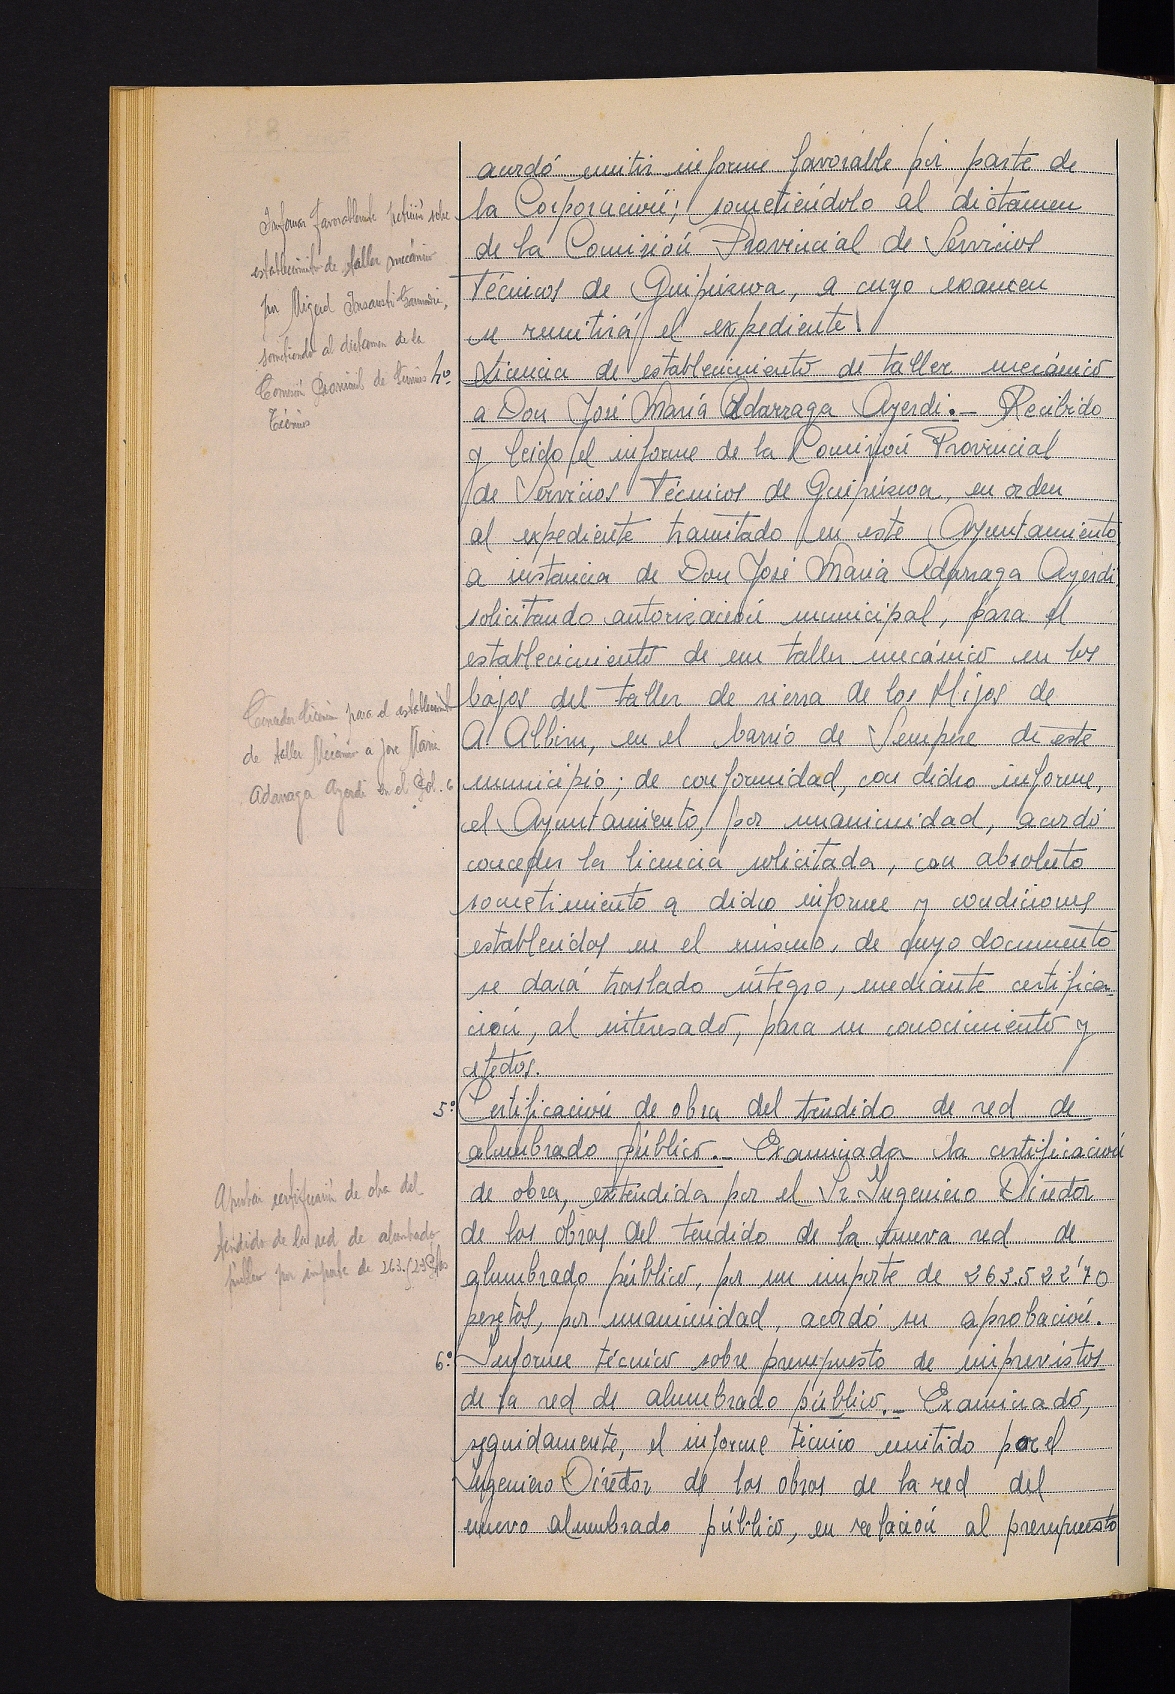 acordó emitir informe favorable por parte de
la Corporación; sometiéndolo al dictámen
de la Comisión Provincial de Servicios
Técnicos de Guipúzcoa, a cuyo examen
se remitirá el expediente.
Informar favorablemente petición sobre
establecimiento de taller mecánico
por Miguel Insausti
sometiendo al dictamen de la
Comisión Provincial de Servicios
Técnicos
4º. Licencia de establecimiento de taller mecánico
a Don José María Adarraga Ayerdi.- Recibido
y leído el informe de la Comisión Provincial
de Servicios Técnicos de Guipúzcoa, en orden
al expediente tramitado en este Ayuntamiento
a instancia de Don José María Adarraga Ayerdi
solicitando autorización municipal, para el
establecimiento de un taller mecánico en los
bajos del taller de sierra de los Hijos de
A. Albisu, en el barrio de Sempere de este
municipio; de conformidad, con dicho informe,
el Ayuntamiento, por unanimidad, acordó
conceder la licencia solicitada, con absoluto
sometimiento a dicho informe y condiciones
establecidas en el mismo, de cuyo documento
se dará traslado íntegro, mediante certifica-
ción, al interesado, para su conocimiento y
efectos.
Conceder licencia para el establecimiento
de taller Mecánico a José María
Adarraga Ayerdi en el
5º. Certificación de obra del tendido de red de
alumbrado público.- Examinada la certificación
de obra, extendida por el Sr. Ingeniero Director
de las obras del tendido de la nueva red de
alumbrado público, por un importe de 263.522'70
pesetas, por unanimidad, acordó su aprobación.
Aprobar certificación de obra del
tendido de la red de alumbrado
público por importe de
6º. Informe técnico sobre presupuesto de imprevistos
de la red de alumbrado público.- Examinado,
seguidamente, el informe técnico emitido por el
Ingeniero Director de las obras de la red del
nuevo alumbrado público, en relación al presupuesto